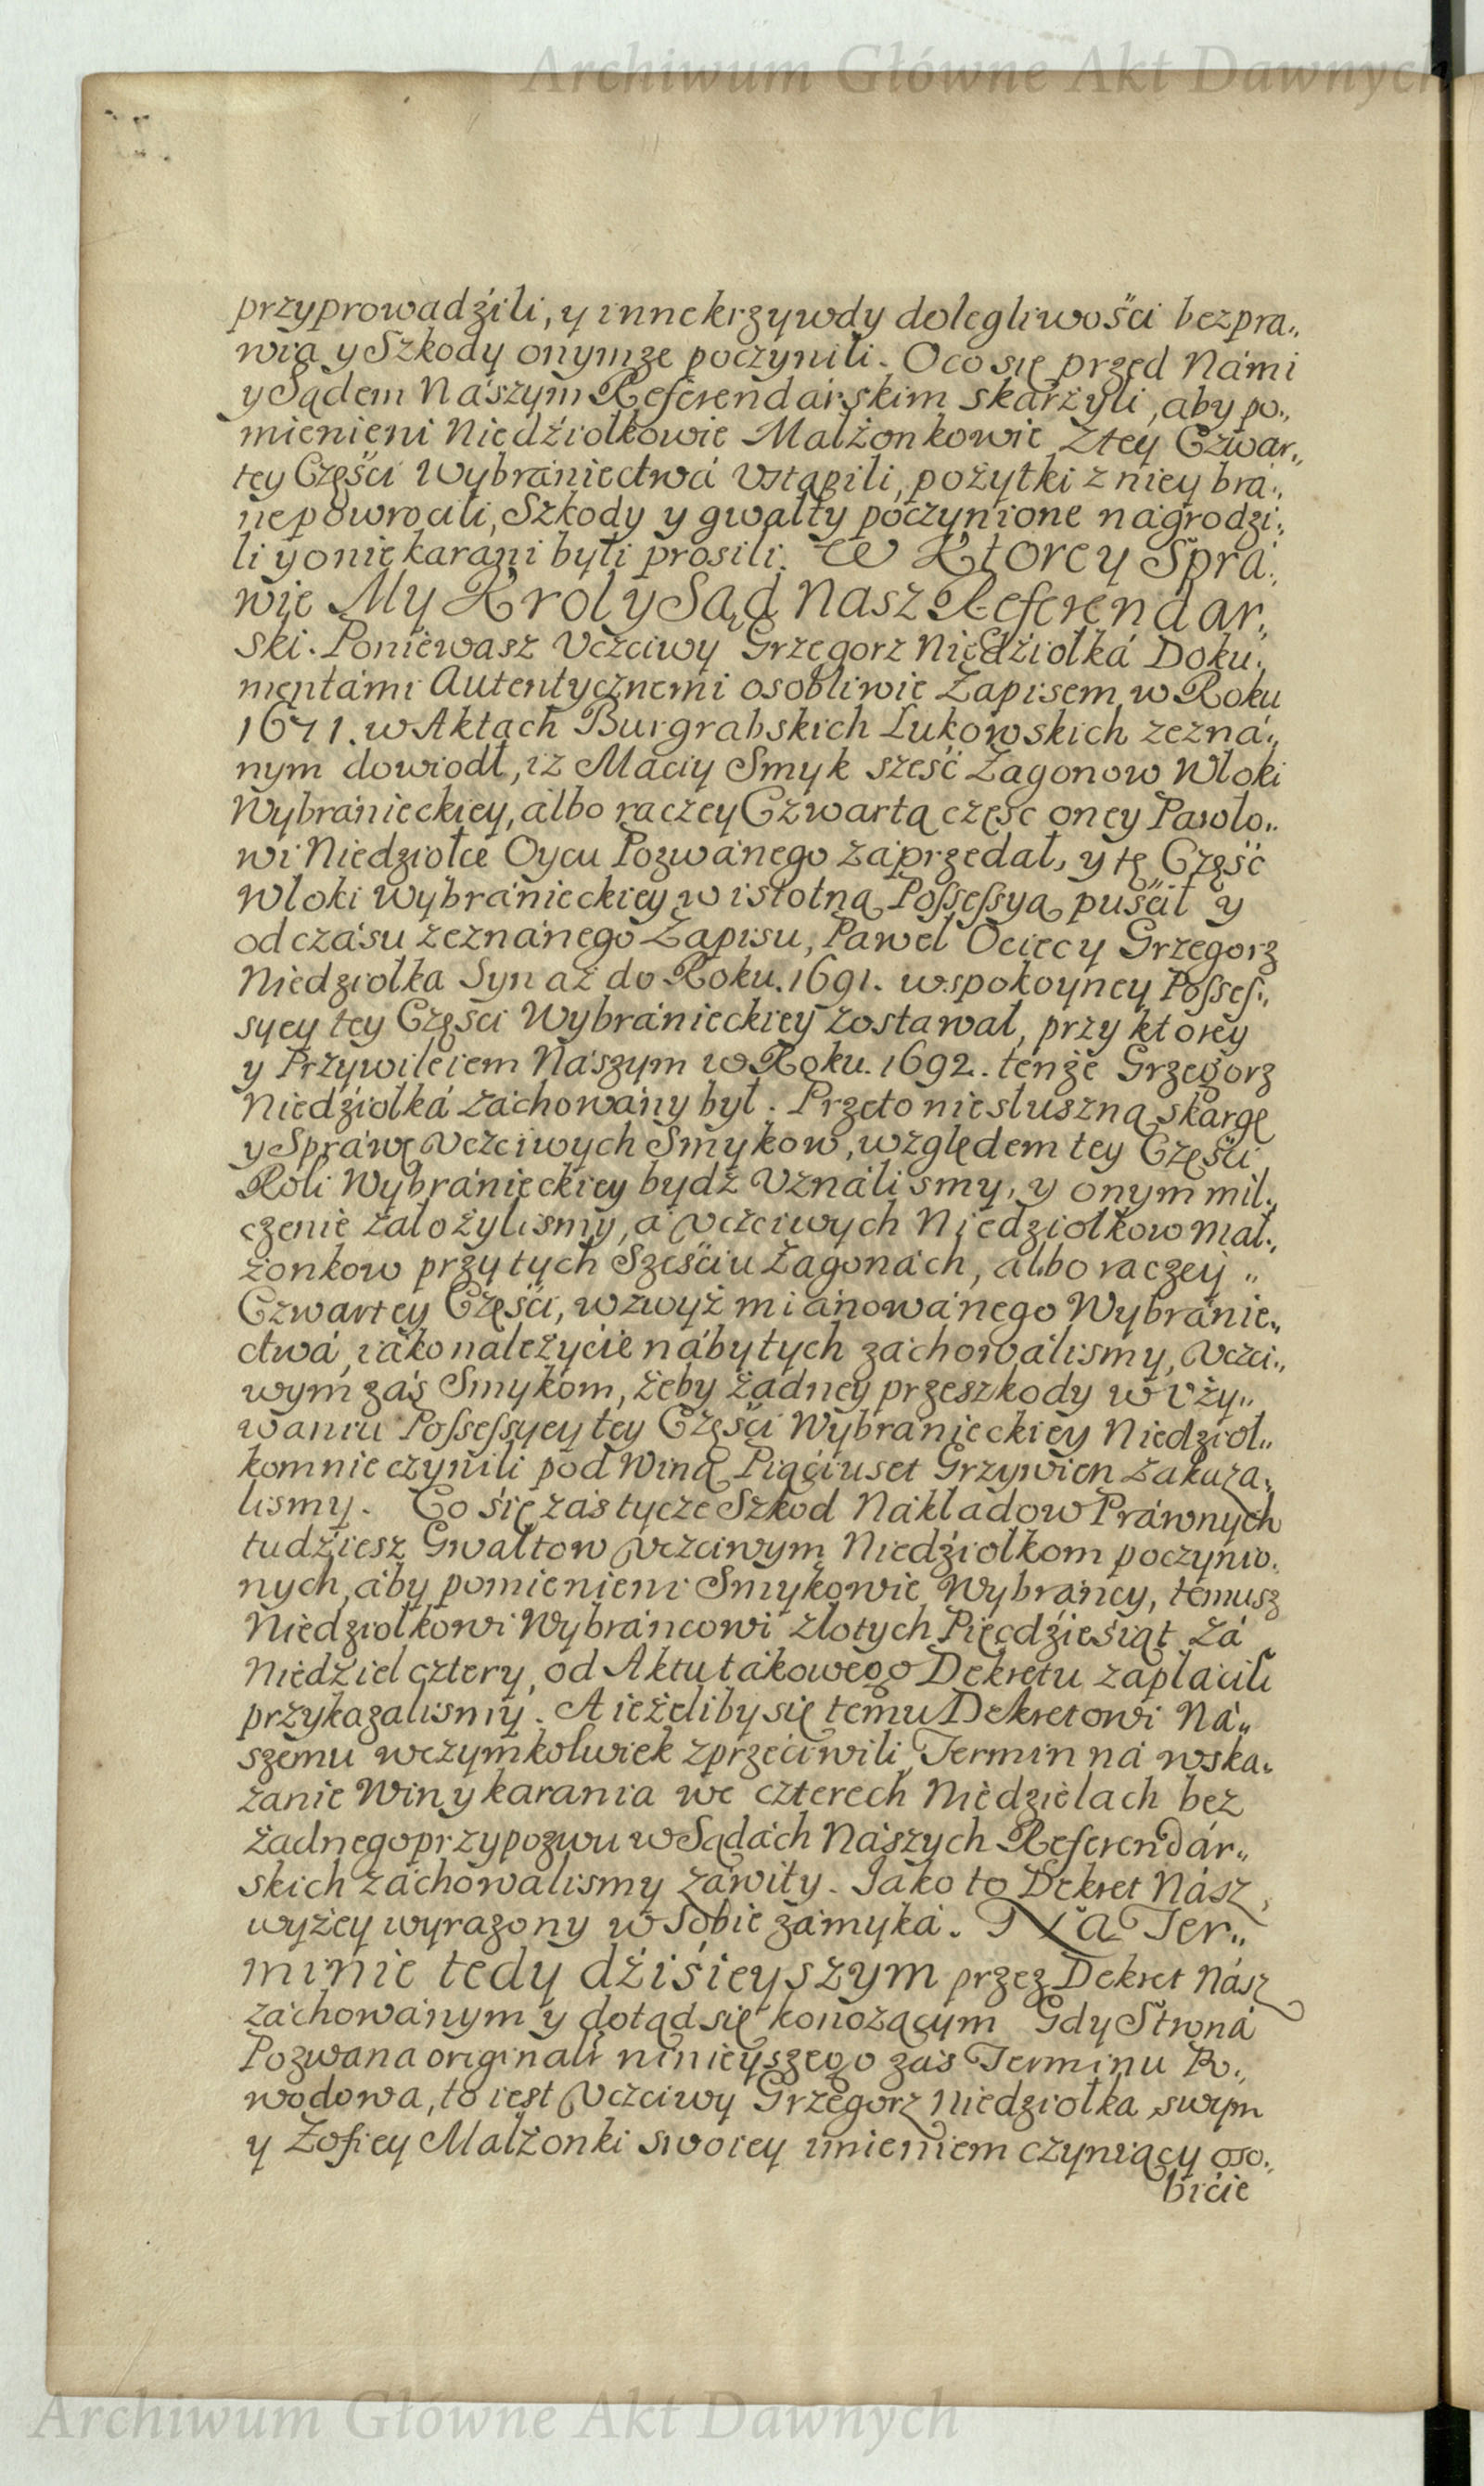 Archiwum Główne Akt Dawnych
przyprowadźili, y inne krzywdy dolegliwośći bezpra„
wia y Szkody onymże poczynili. Oco się przed Námi
y Sądem Nászym Referendárskim skárżyli, aby po„
mienieni Niedźiołkowie Małżonkowie z tey Czwar„
tey Częśći Wybraniectwá Vstąpili, pożytki z niey brá„
ne powroćili, Szkody y gwałty poczynione nágrodzi„
li y o nie karáni byli prosili. W Ktorey Sprá„
wie My Krol y Sąd Nasz Referendar„
ski. Poniewasz Vczciwy Grzegorz Niedźiołká Doku„
mentámi Autentycznemi osobliwie Zapisem w Roku
1671. w Aktach Burgrabskich Łukowskich zezná„
nym dowiodł, iż Maciy Smyk sześć Zagonow Włoki
Wybránieckiey, álbo raczey Czwartą częsc oney Pawło„
wi Niedziołce Oycu Pozwánego záprzedał, y tę Część
Włoki Wybránieckiey w istotną Possessyą puśćił y
od czásu zeznánego Zapisu, Paweł Ociec y Grzegorz
Niedziołka Syn aż do Roku. 1691. w spokoyney Posses„
syey tey Częśći Wybránieckiey zostawał, przy ktorey
y Przywileiem Nászym w Roku. 1692. tenże Grzegorz
Niedźiołká záchowány był. Przeto niesłuszną skargę
y Spráwę Vczciwych Smykow, względem tey Częśći
Roli Wybránieckiey bydź Vználismy, y onym mil„
czenie założylismy, á Vczciwych Niedziołkow Mał„
żonkow przy tych Sześćiu Zagonách, albo raczey „
Czwartey Częśći, wzwyż miánowánego Wybránie„
ctwá, iáko należycie nábytych záchowálismy, Vczci„
wym záś Smykom, żeby żadney przeszkody w Vży„
waniu Possessyey tey Częśći Wybránieckiey Niedzioł„
kom nie czynili pod Winą Piąciuset Grzywien zákaza„
lismy. Co się záś tycze Szkod Nákładow Práwnych
tudżiesz Gwałtow Vczciwym Niedźiołkom poczynio„
nych, áby pomienieni Smykowie Wybráncy, temusz
Niedziołkowi Wybráncowi złotych Pięcdźieśiąt zá
Niedźiel cztery, od Aktu tákowego Dekretu zapłácili
przykazalismy. A ieżeliby się temu Dekretowi Ná„
szemu w czymkolwiek zprzećiwili Termin ná wska„
zanie Win y karania we czterech Niedzielach bez
żadnego przypozwu w Sądách Nászych Referendár„
skich záchowalismy záwity. Jako to Dekret Nász
wyżey wyrażony w Sobie zámyká. Ná Ter„
minie tedy dźiśieyszym przez Dekret Nász
záchowánym y dotąd się konożącym Gdy Stroná
Pozwana originalr ninieyszego záś Terminu Po„
wodowa, to iest Vczciwy Grzegorz Niedziołka swym
y Zofiey Małżonki swoiey imieniem czyniący oso„
biśćie
Archiwum Główne Akt Dawnych